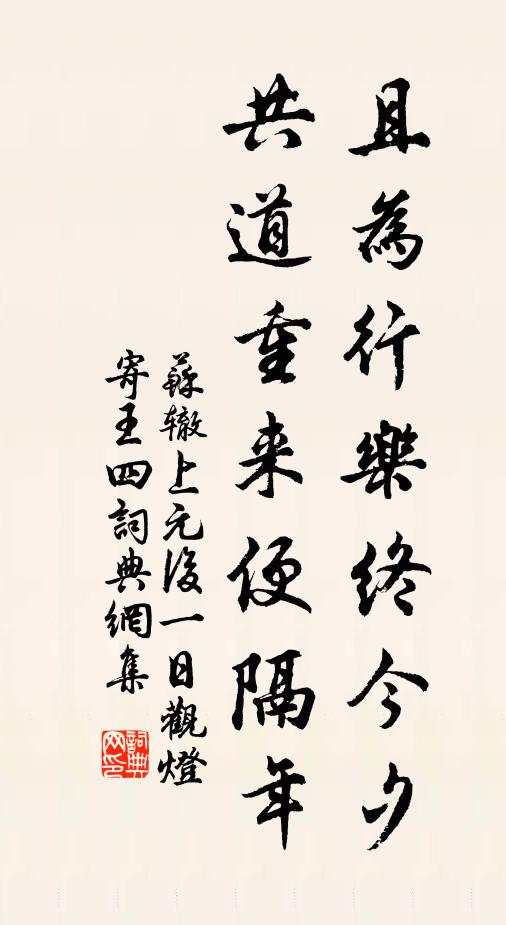 且為行樂終今夕
共道重来便隔年
蘇辙上元後一日觀燈
寄王四詞典網集
詞典
网印